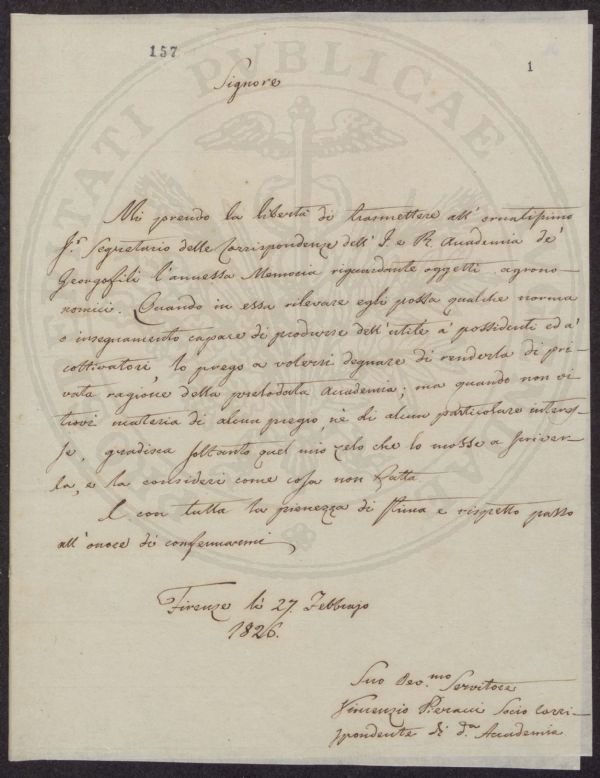 157
1
Signore
Mi prendo la libertà di trasmettere all' ornatissimo
Sr. Segretario delle Corrispondenze dell' I. e R. Accademia de'
Georgofili l'annessa Memoria riguardante oggetti agrono-
nomici. Quando in essa rilevare egli possa qualche norma
o insegnamento capace di produrre dell' utile a' possidenti ed a'
coltivatori, lo prego a volersi degnare di renderla di pri-
vata ragione della prelodata Accademia; ma quando non vi
trovi materia di alcun pregio, nè di alcun particolare interes-
se, gradisca soltanto quel mio zelo che lo mosse a scriver-
la, e la consideri come cosa non fatta.
E con tutta la pienezza di stima e rispetto passo
all' onore di confermarmi
Firenze li 27. Febbrajo
1826.
Suo Dev.mo Servitore
Vincenzio Pieracci Socio Corri-
spondente di d.a Accademia
PROSPERITATI PUBLICAE